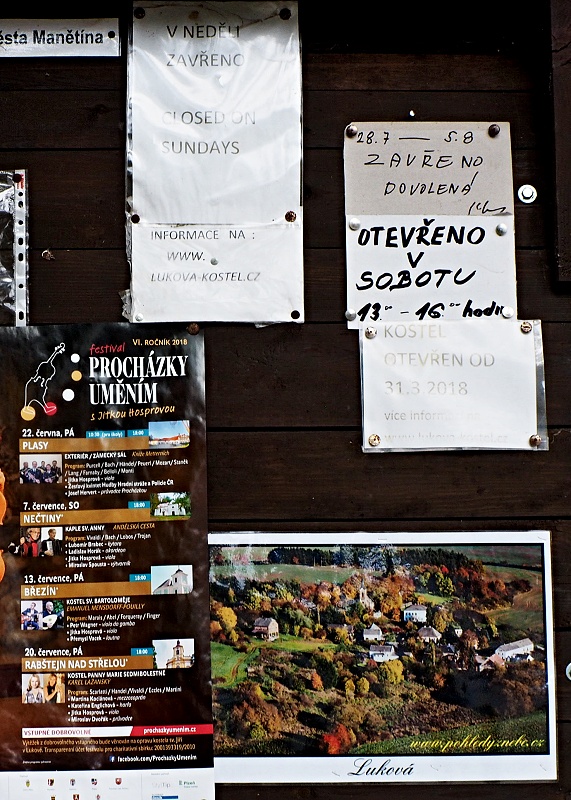 ěsta Manětína
V NEDĚLI
ZAVŘENO
CLOSED ON
SUNDAYS
INFORMACE NA :
WWW.
LUKOVA-KOSTEL.CZ
28.7 — 5.8
ZAVŘENO
DOVOLENÁ
OTEVŘENO
V
SOBOTU
13.00 - 16.00 hodin
KOSTEL
OTEVŘEN OD
31.3.2018
více inform
www.lukova-kostel.cz
VI. ROČNÍK 2018
festival
PROCHÁZKY
UMĚNÍM
s Jitkou Hosprovou
22. června, PÁ
18:00
PLASY
EXTERIÉR / ZÁMECKÝ SÁL Kníže Metternich
Program: Purcell / Bach / Händel / Peuerl / Mozart / Staněk
/ Lang / Farnaby / Bellini / Monti
• Jitka Hosprová - viola
• Žesťový kvintet Hudby Hradní stráže a Policie ČR
• Josef Hervert - průvodce Procházkou
7. července, SO
18:00
NEČTINY
KAPLE SV. ANNY ANDĚLSKÁ CESTA
Program: Vivaldi / Bach / Lobos / Trojan
• Lubomír Brabec - kytara
• Ladislav Horák - akordeon
• Jitka Hosprová - viola
• Miroslav Špousta - výtvarník
13. července, PÁ
18:00
BŘEZÍN
KOSTEL SV. BARTOLOMĚJE
EMANUEL MENSDORFF-POUILLY
Program: Marais / Abel / Forqueray / Finger
• Petr Wagner - viola da gamba
• Jitka Hosprová - viola
• Přemysl Vacek - loutna
20. července, PÁ
18:00
RABŠTEJN NAD STŘELOU
KOSTEL PANNY MARIE SEDMIBOLESTNÉ
KAREL LAŽANSKÝ
Program: Scarlatti / Händel / Vivaldi / Eccles / Martini
• Martina Kociánová - mezzosoprán
• Kateřina Englichová - harfa
• Jitka Hosprová - viola
• Miroslav Dvořák - průvodce
VSTUPNÉ DOBROVOLNÉ
prochazkyumenim.cz
Výtěžek z dobrovolného vstupného bude věnován na opravu kostela sv. Jiří
v Lukové. Transparentní účet festivalu pro charitativní sbírku: 2001393319/2010
facebook.com/ProchazkyUmenim
www.pohledyznebe.cz
Luková